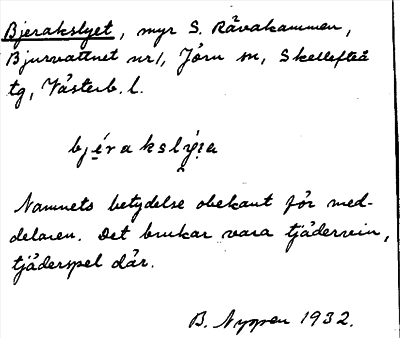 Bjerakslyet, myr S. Råvakammen,
Bjurvattnet nr 1, Jörn sn, Skellefteå
tg, Västerb. l.
bjérakslýia
Namnets betydelse obekant för med-
delaren. Det brukar vara tjäder
tjäderspel där.
B. Nyppen 1932.